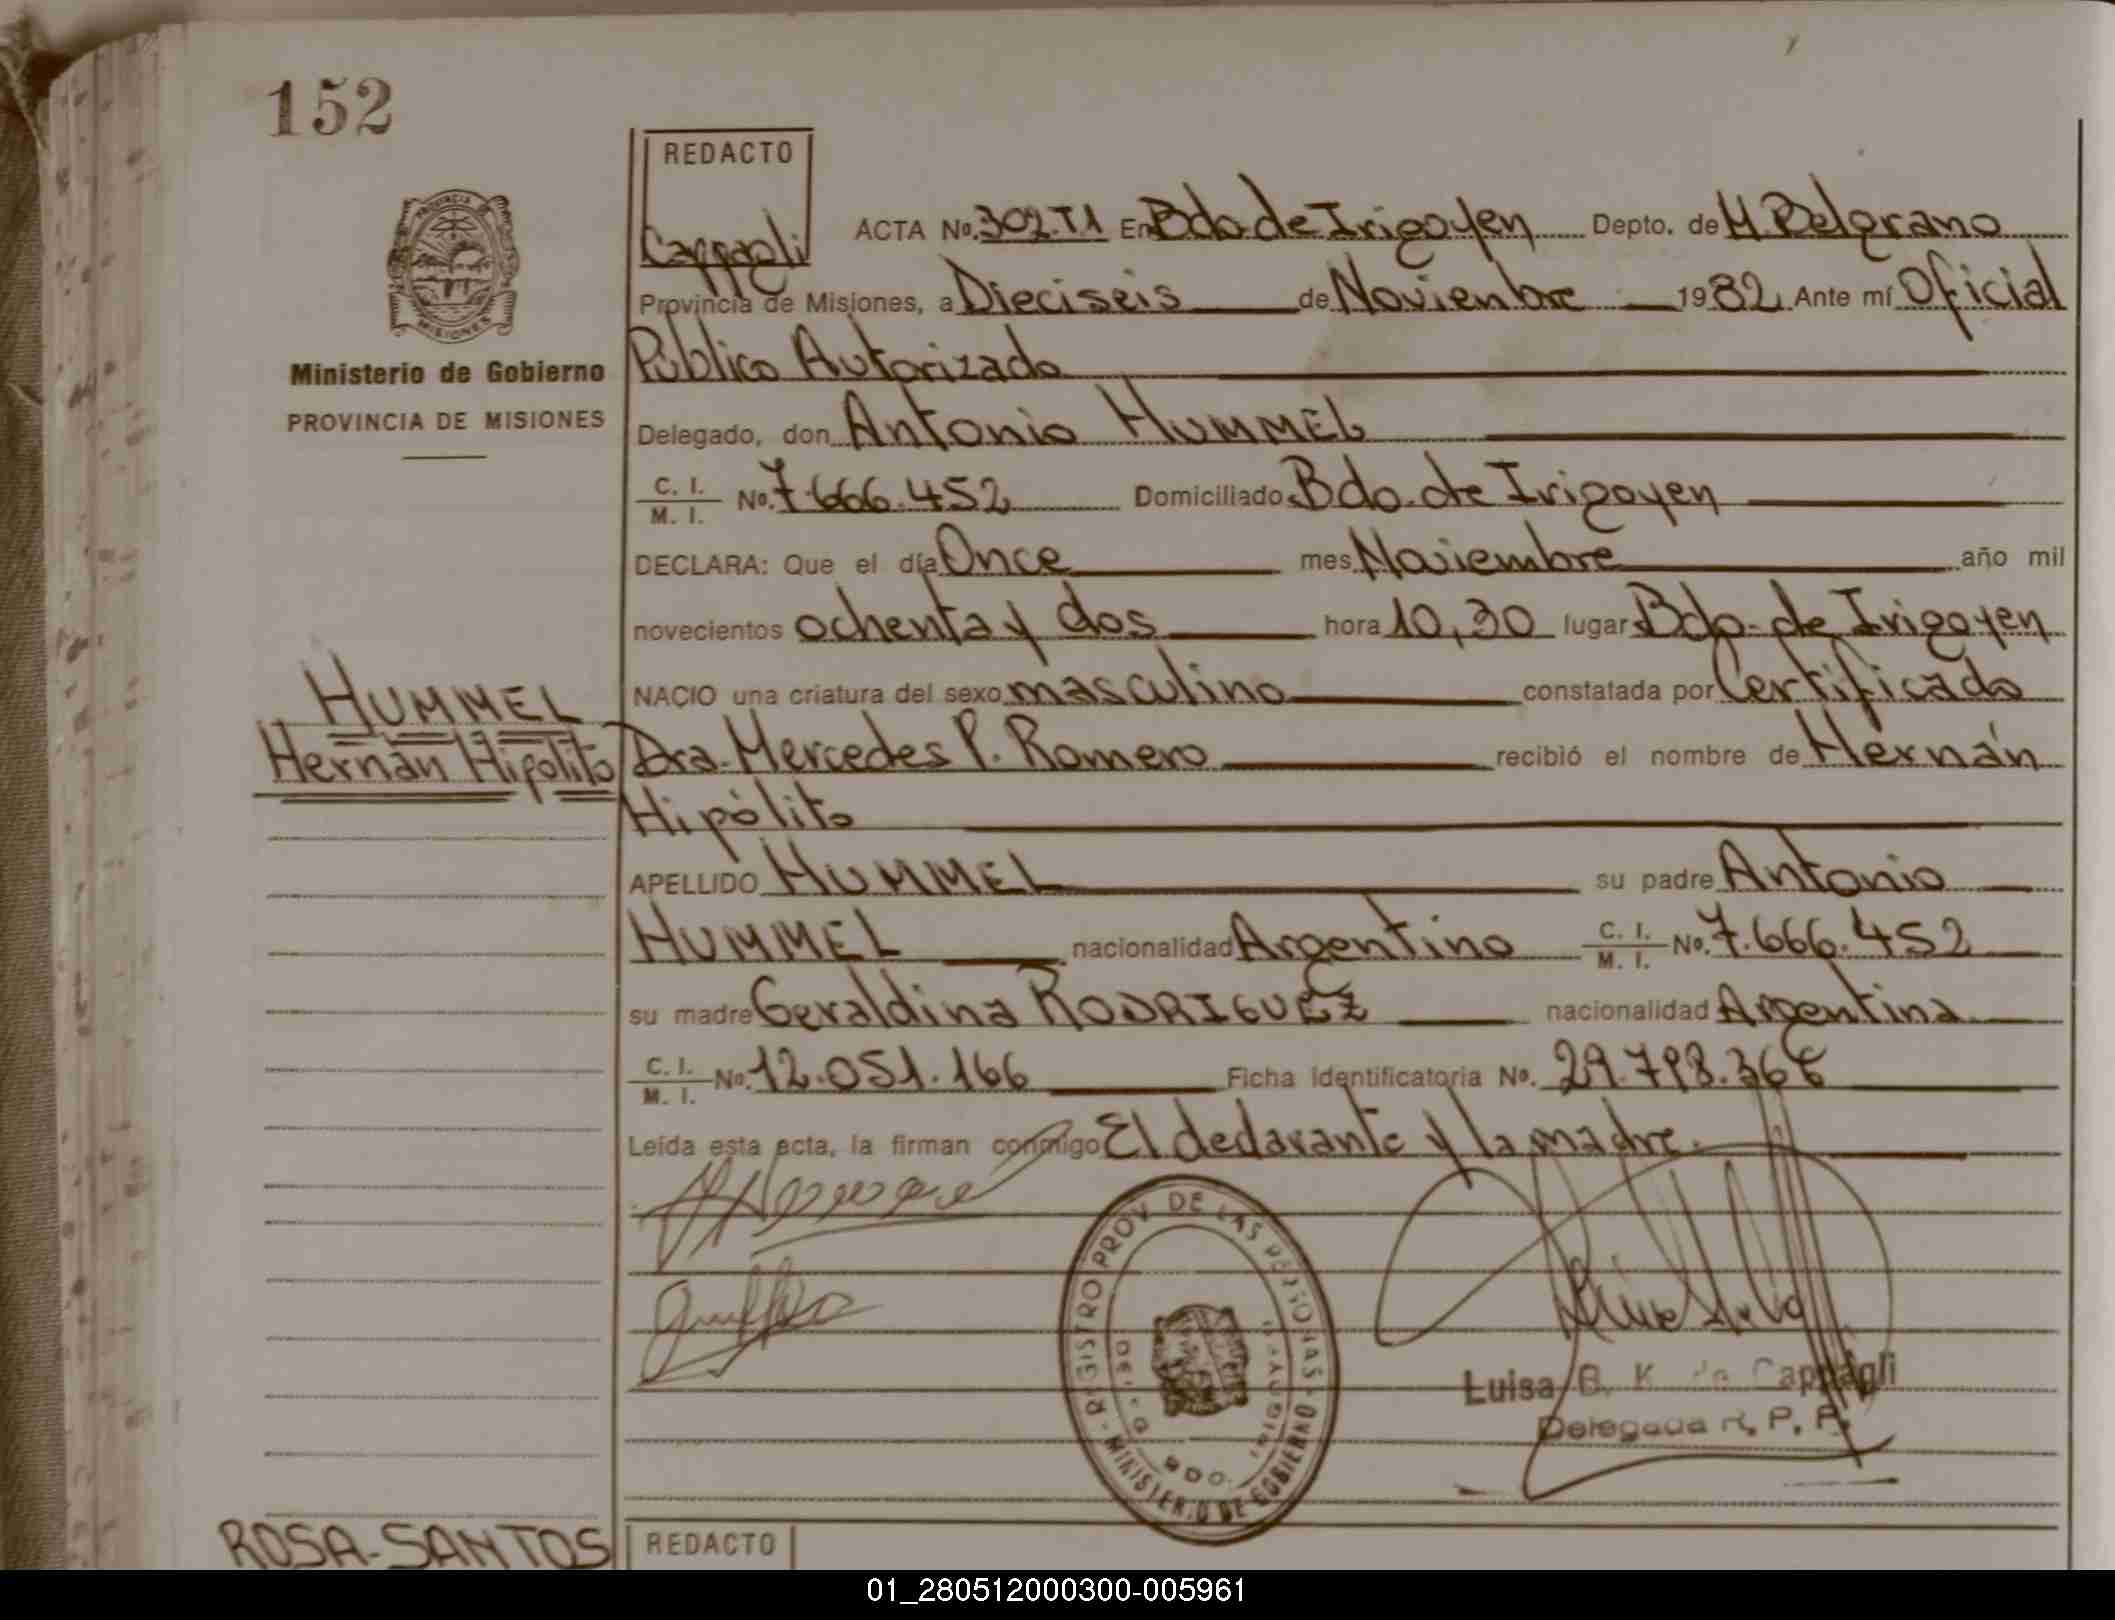 152
REDACTO
Cappagli
PROVINCIA DE
MISIONES
Ministerio de Gobierno
PROVINCIA DE MISIONES
ACTA No. 302.T1 En Bdo. de Irigoyen Depto. de M. Belgrano
Provincia de Misiones, a Dieciseis de Noviembre 1982 Ante mí Oficial
Público Autorizado
Delegado, don Antonio HUMMEL
C. I. / M. I. No. 7.666.452 Domiciliado Bdo. de Irigoyen
DECLARA: Que el día Once mes Noviembre año mil
novecientos ochenta y dos hora 10,30 lugar Bdo. de Irigoyen
NACIO una criatura del sexo masculino constatada por Certificado
HUMMEL
Hernán Hipólito
Dra. Mercedes P. Romero recibió el nombre de Hernán
Hipólito
APELLIDO HUMMEL su padre Antonio
HUMMEL nacionalidad Argentino C. I. / M. I. No. 7.666.452
su madre Geraldina RODRIGUEZ nacionalidad Argentina
C. I. / M. I. No. 12.051.166 Ficha identificatoria No. 29.798.366
Leída esta acta, la firman conmigo El declarante y la madre.
REGISTRO PROV. DE LAS PERSONAS
MINISTERIO DE GOBIERNO
Luisa B. K. de Cappagli
Delegada R. P. P.
ROSA-SANTOS
REDACTO
01_280512000300-005961